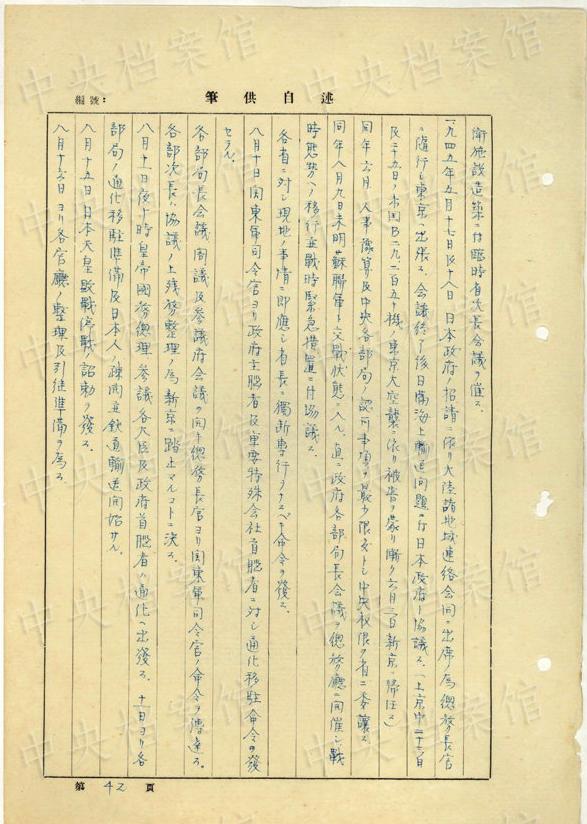 筆供自述
編號：
衛施設造築ニ付臨時省次長会議ヲ催ス
一九四五年五月十七日及十八日 日本政府ノ招請ニ依リ大陸諸地域連絡会同ニ出席ノ為總務長官
ニ随行シ東京ニ出張ス。会議終了後日満海上輸送問題ニ付日本政府ト協議ス。（上京中二十三日
及二十五日ノ米国B二九、二百五十機ノ東京大空襲ニ依リ被害ヲ蒙リ漸ク六月三日新京ニ帰任ス）
同年六月 人事豫算及中央各部局ノ認可事項ヲ最少限度トシ中央权限ヲ省ニ委讓ス
同年八月九日未明蘇聯軍ト交戰状態ニ入ル。直ニ政府各部局長会議ヲ總務廳ニ開催シ戰
時態勢ヘノ移行並戰時緊急措置ニ付協議ス
各省ニ対シ現地ノ事情ニ即應シ省長ニ獨断專行ヲナスベキ命令ヲ發ス
八月十日関東軍司令官ヨリ政府主脳者及重要特殊会社首脳者ニ対シ通化移駐命令ヲ發
セラル。
各部局長会議、国務及参議府会議ヲ開キ總務長官ヨリ関東軍司令官ノ命令ヲ傳達ス。
各部次長ハ協議ノ上残務整理ノ為新京ニ踏止マルコトニ決ス
八月十一日夜十時皇帝國務總理参議各大臣及政府首脳者ハ通化ヘ出發ス。十一日ヨリ各
部局ノ通化移駐準備及日本人ノ疎開並鉄道輸送開始サル
八月十五日 日本天皇敗戰停戰ノ詔勅ヲ發ス
八月十六日ヨリ各官廳ノ整理及引継準備ヲ為ス
第 42 頁
中央档案馆